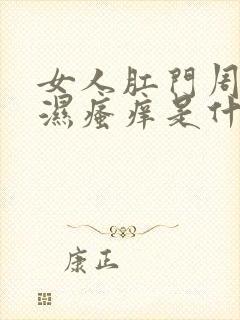 女人肛門周
濕瘙痒是什
康正